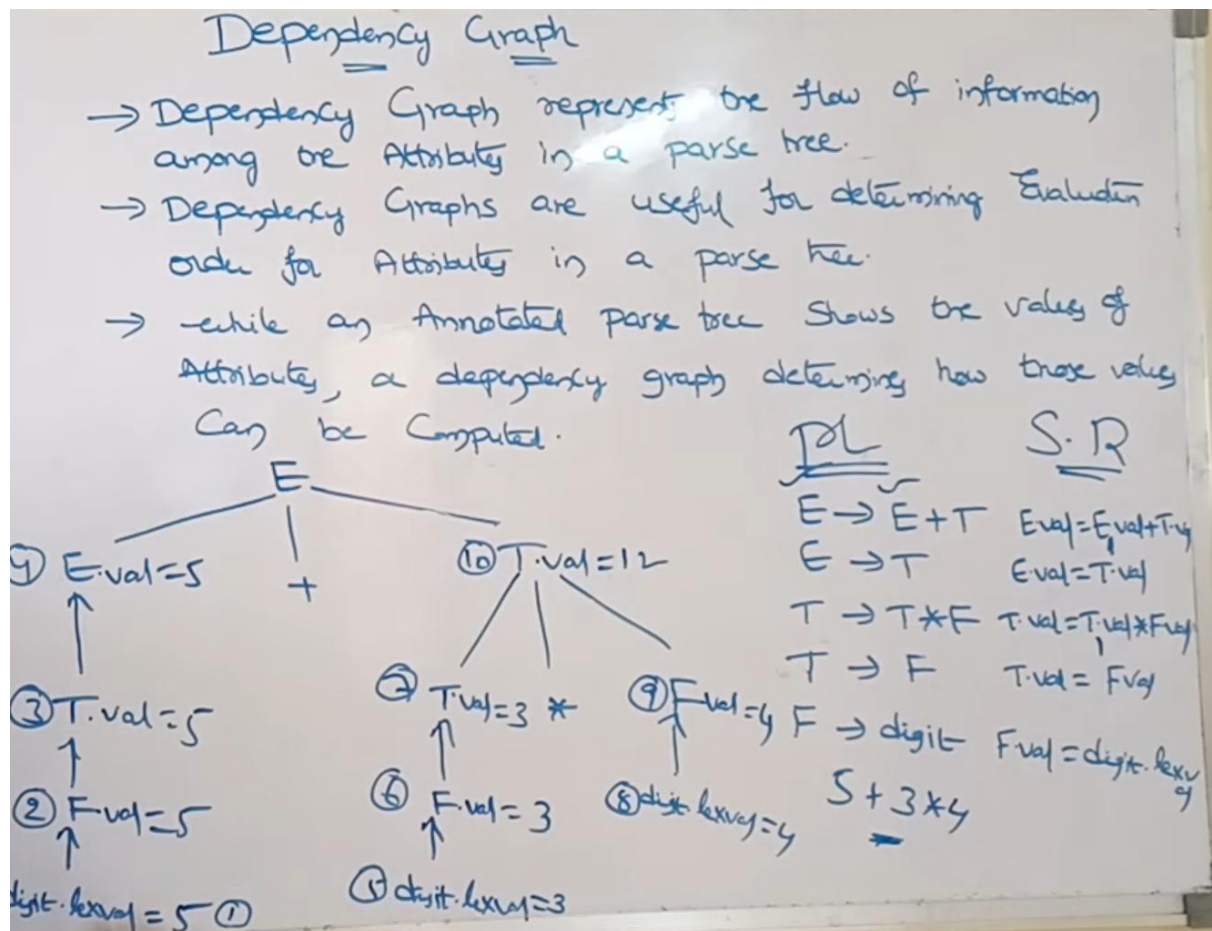 Dependency Graph
→ Dependency Graph represents the flow of information
among the Attributes in a parse tree.
→ Dependency Graphs are useful for determining Evaluation
order for Attributes in a parse tree.
→ while an Annotated parse tree shows the values of
Attributes, a dependency graph determines how those values
Can be Computed.
PL S.R
E → E + T E.val = E₁.val + T.val
E → T E.val = T.val
T → T * F T.val = T₁.val * F.val
T → F T.val = F.val
F → digit F.val = digit.lexval
5 + 3 * 4
E
④ E.val = 5 + ⑩ T.val = 12
③ T.val = 5 ⑦ T.val = 3 * ⑨ F.val = 4
② F.val = 5 ⑥ F.val = 3 ⑧ digit.lexval = 4
digit.lexval = 5 ① ⑤ digit.lexval = 3